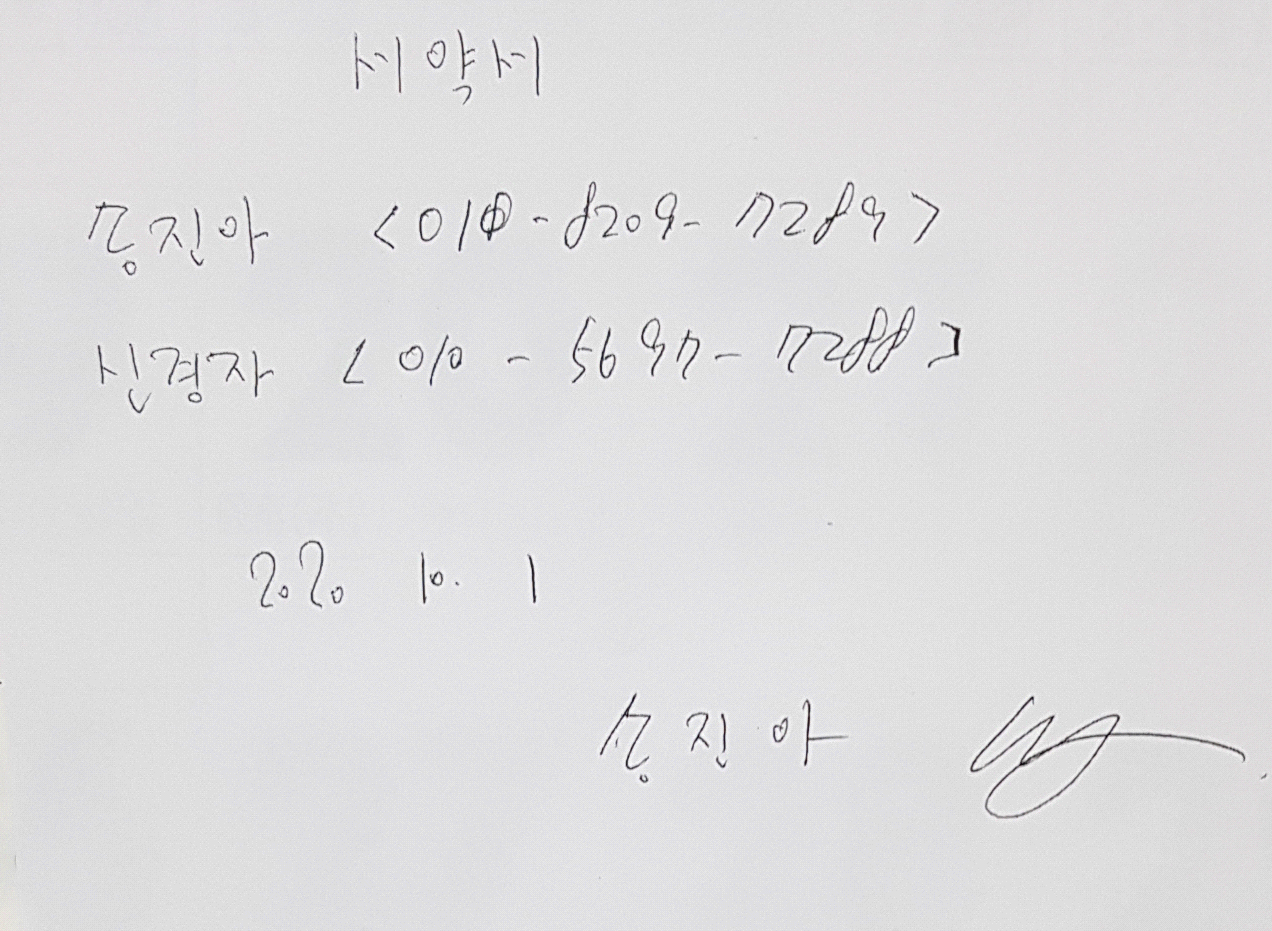 서약서
송진아 <010-8209-7289>
신경자 <010-5697-7288>
2020 10. 1
송진아